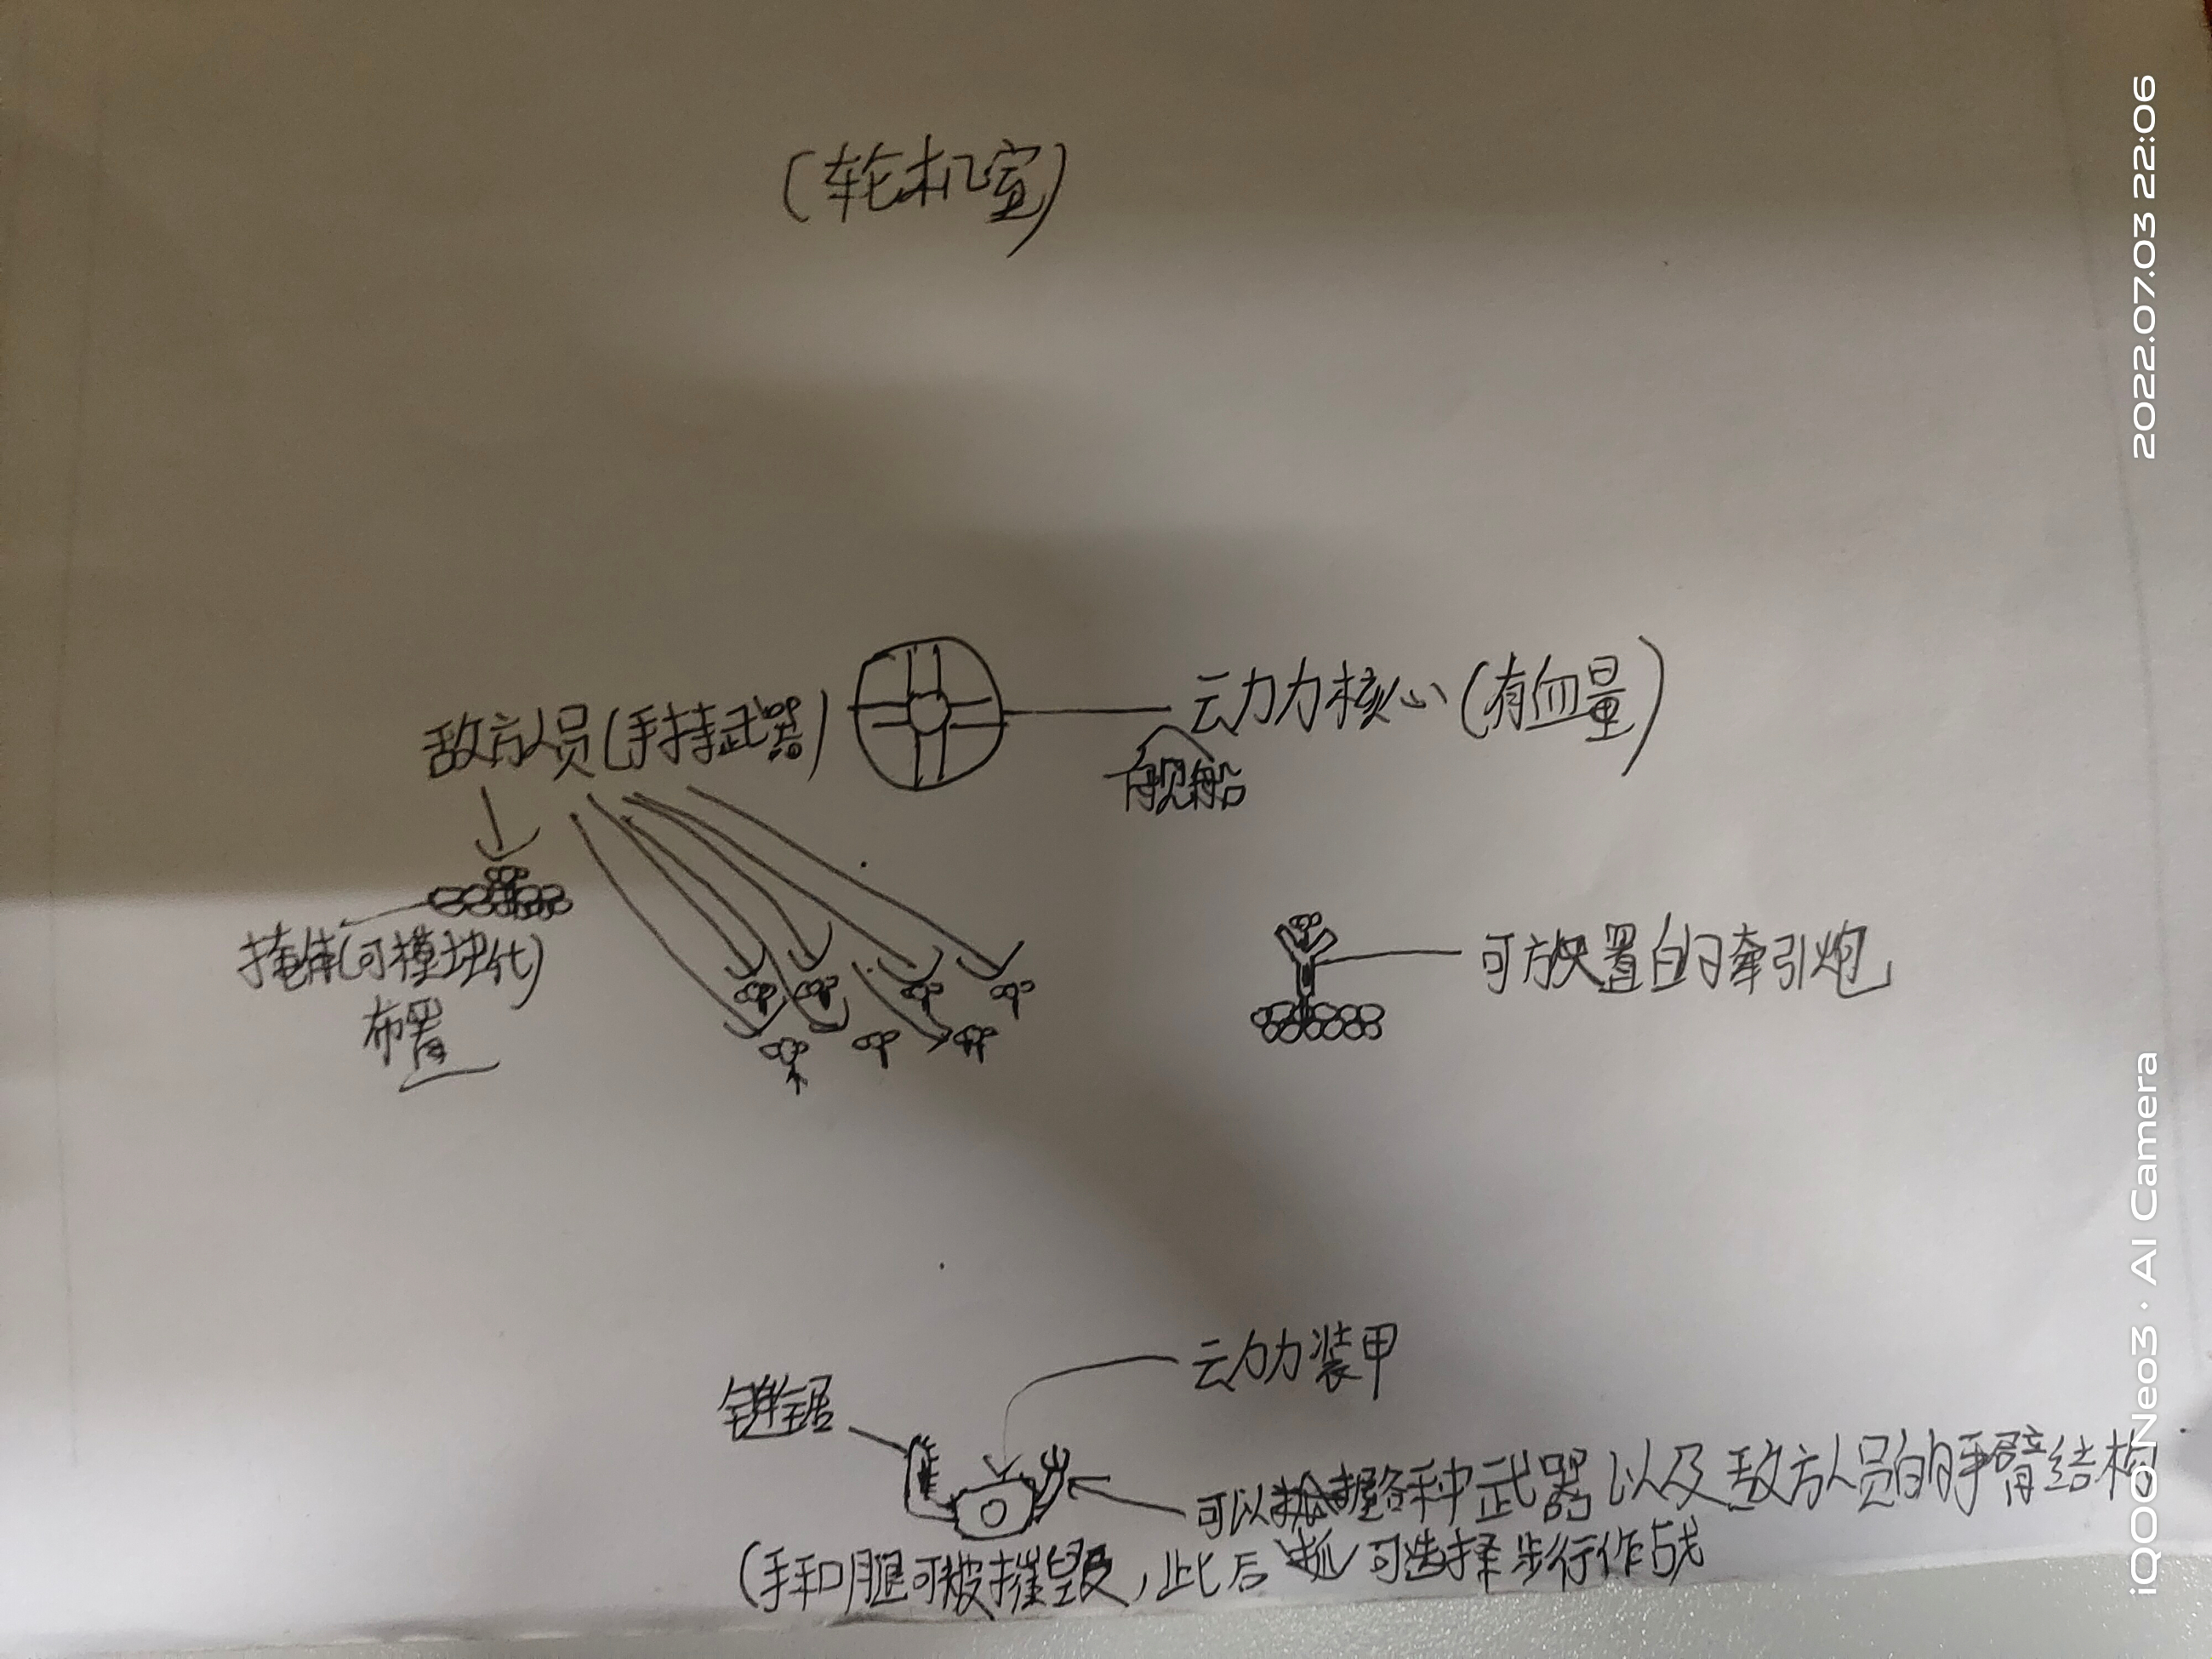 (轮机室)
动力核心(有血量)
舰船
敌方人员(手持武器)
掩体(可模块化)
布置
可放置的牵引炮
动力装甲
链锯
可以握各种武器以及敌方人员的手臂结构
(手和腿可被摧毁,此后 可选择步行作战
2022.07.03 22:06
iQOO Neo3 · AI Camera